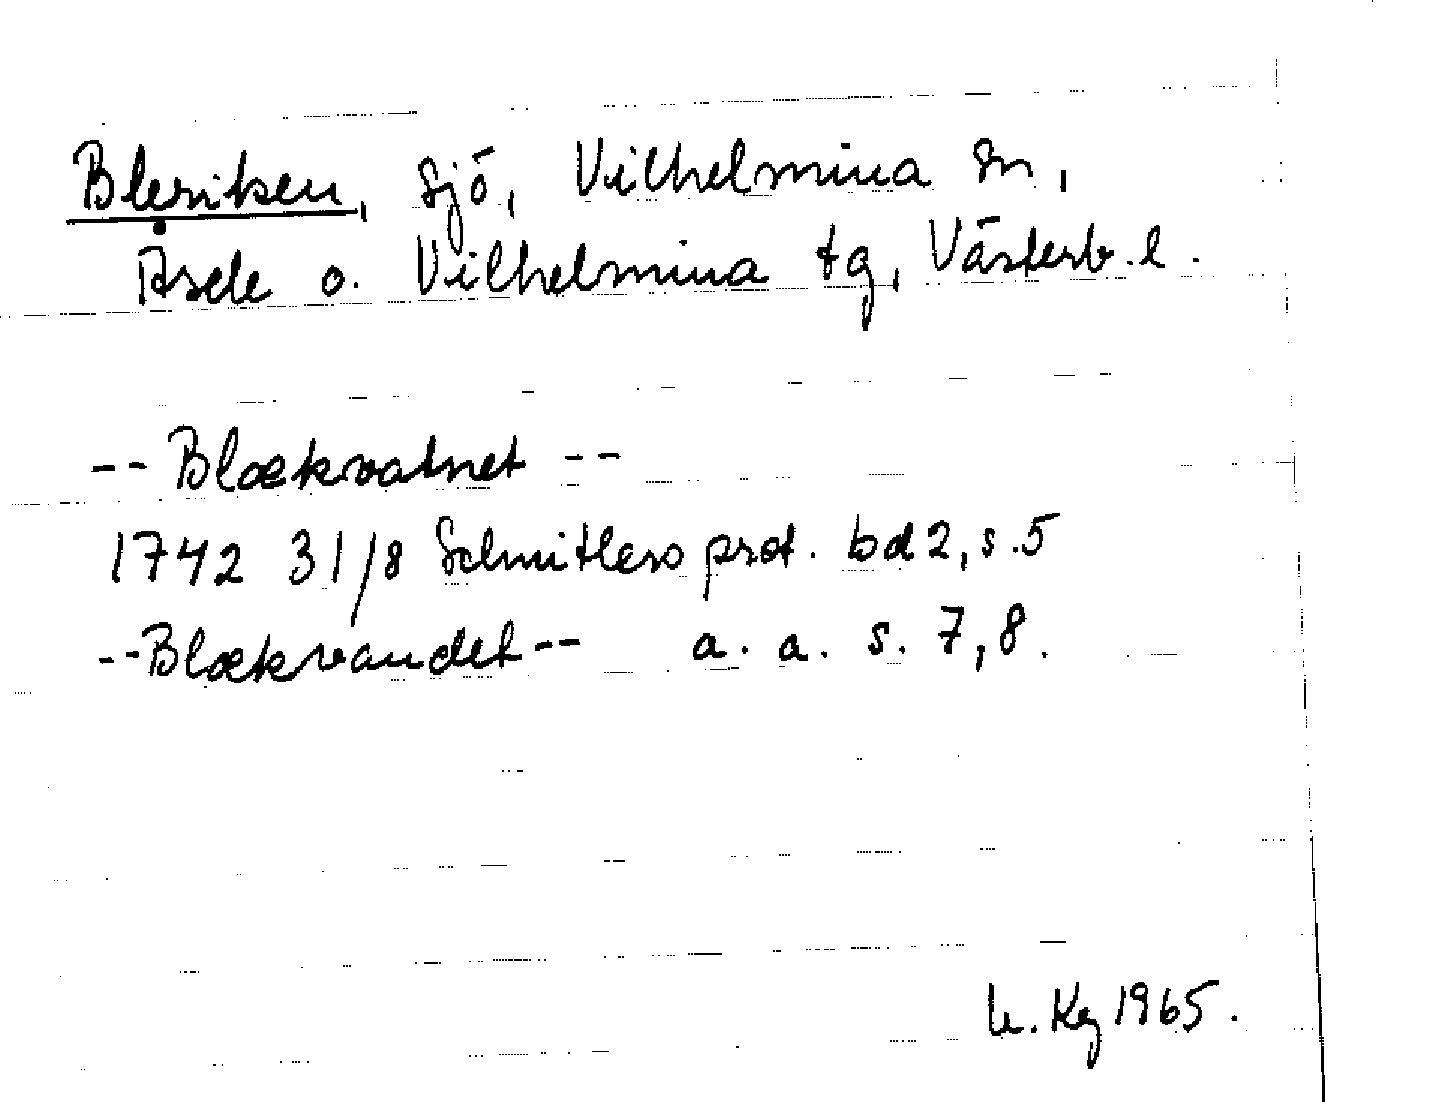 Bleriken, sjö, Vilhelmina sn,
Åsele o. Vilhelmina tg, Västerb. l.
-- Blækvatnet --
1742 31/8 Schnitlers prot. bd 2, s. 5
-- Blækvandet -- a. a. s. 7, 8.
Kg 1965.